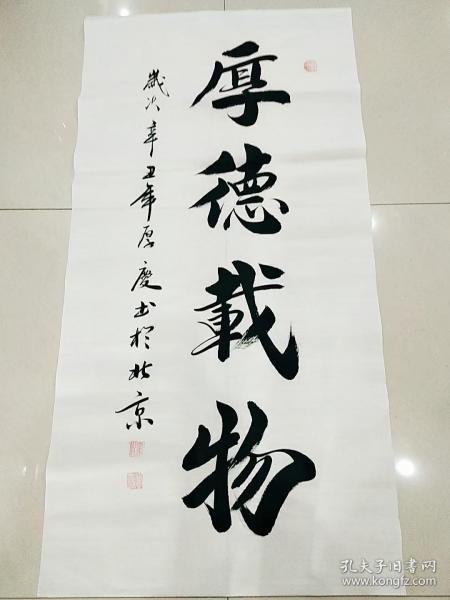 厚德載物
歲次辛丑年厚慶书於北京
孔夫子旧书网
www.kongfz.com